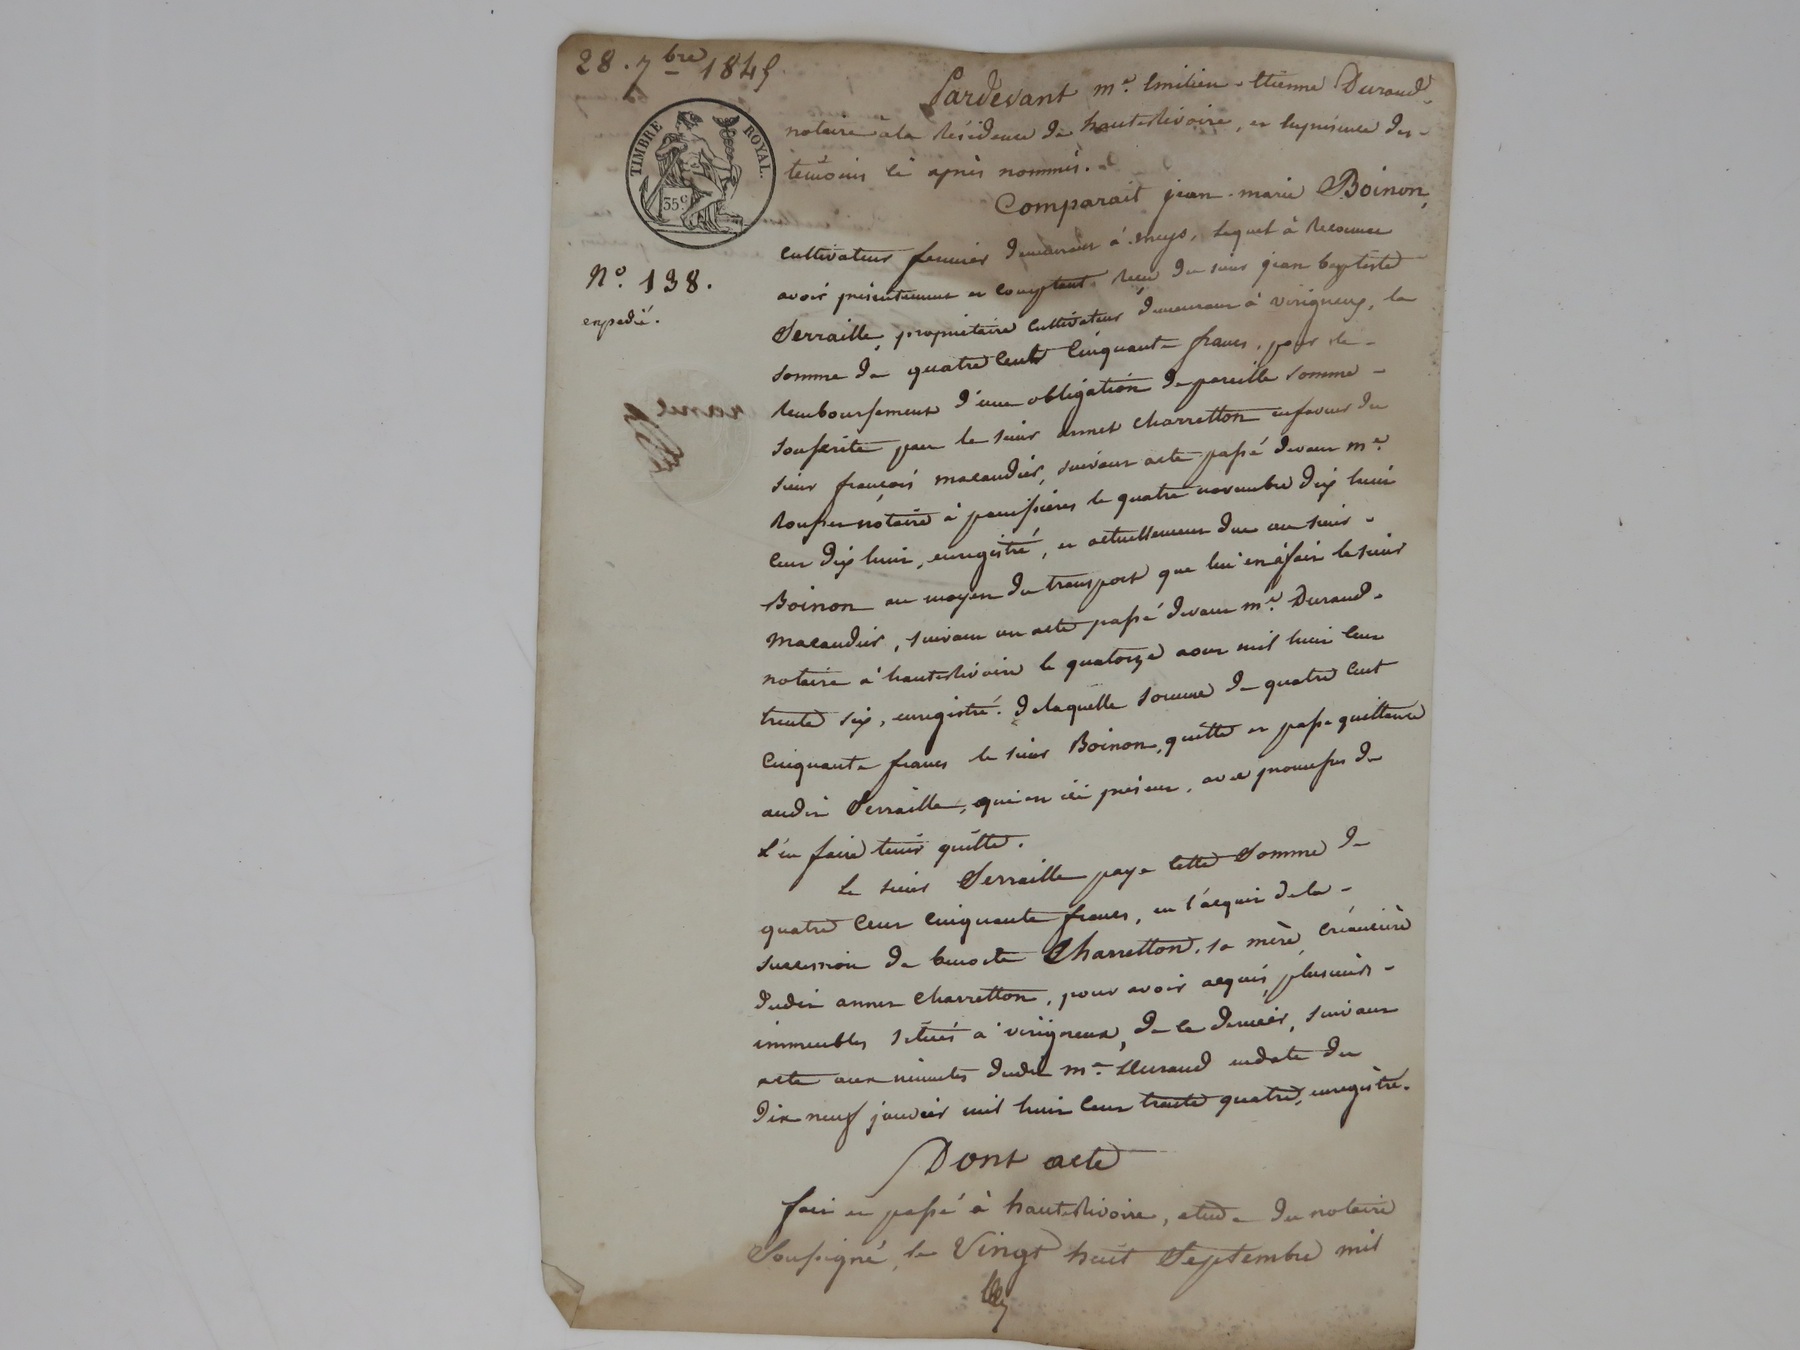 28. 7bre 1845
TIMBRE ROYAL.
35c
No. 138.
expedié.
Pardevant me. Emilien Etienne Durand
notaire à la Résidence de hauterivoire, en la présence des
témoins ci après nommés.
Comparait jean-marie Boinon,
cultivateur fermier demeurant à meys, lequel à Reconnu
avoir présentement et comptant Reçu du sieur jean baptiste
Serraille, propriétaire cultivateur demeurant à virigneux, la
somme de quatre cent cinquante francs, pour le
Remboursement d'une obligation de pareille somme
souscrite par le sieur annet charretton en faveur du
sieur françois macaudier, suivant acte passé devant me.
notaire à panissières le quatre novembre dix huit
cent dix huit, enregistré, et actuellement due au sieur
Boinon au moyen du transport que lui en a fait le sieur
Macaudier, suivant un acte passé devant me. Durand
notaire à hauterivoire le quatorze aout mil huit cent
trente six, enregistré. de laquelle somme de quatre cent
cinquante francs le sieur Boinon, quitte et passe quittance
audit Serraille, qui est ici présent, avec promesse de
l'en faire tenir quitte.
Le sieur Serraille paye cette somme de
quatre cent cinquante francs, en l'acquit de la
succession de benoite Charretton, sa mère, créancière
dudit annet charretton, pour avoir acquis, plusieurs
immeubles situés à virigneux, de ce dernier, suivant
acte aux minutes dudit me. Durand en date du
dix neuf janvier mil huit cent trente quatre, enregistré.
Dont acte
fait et passé à hauterivoire, etude du notaire
Soussigné, le Vingt huit Septembre mil